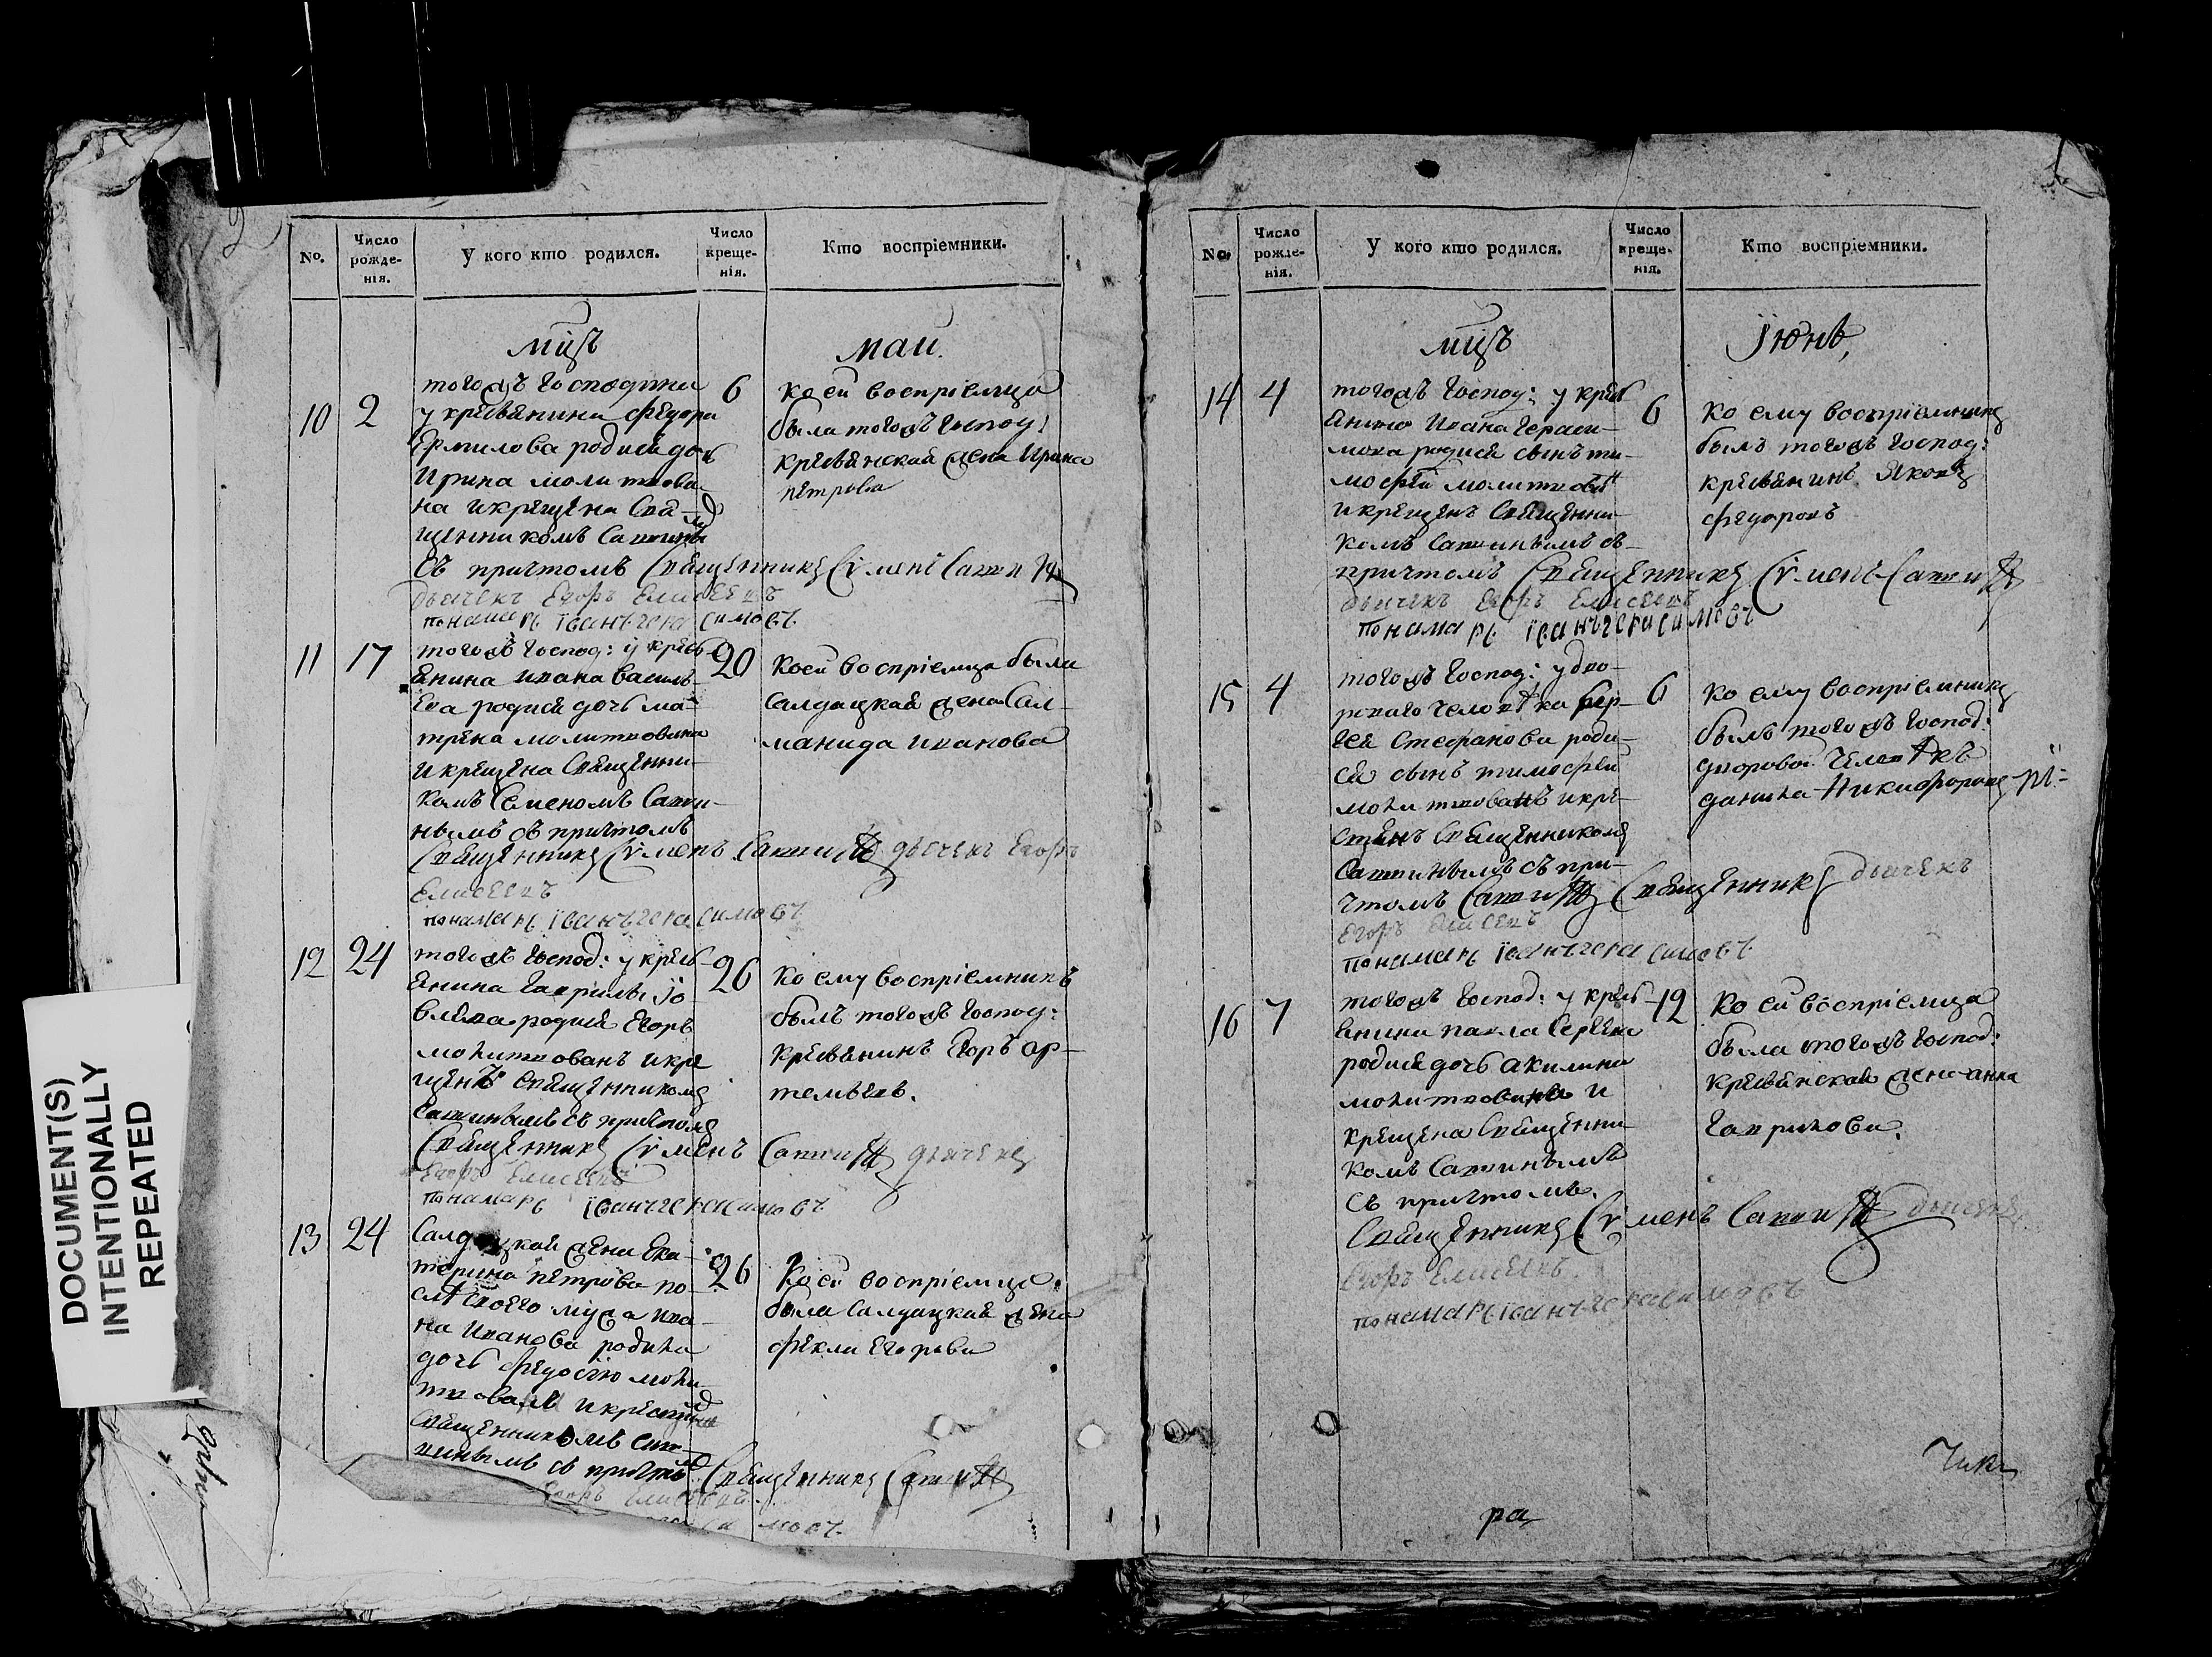 No.
Число рожде-нія.
У кого кто родился.
Число креще-нія.
Кто воспріемники.
мцъ
маи.
10
2
тогожъ господина
у крестьянина Федора
Ермилова родися дочь
Ирина молитвова-
на и крещена Свя-
щенникомъ
съ причтомъ Священникъ Суменъ
дьячекъ Егоръ Елисеевъ
понамарь Іванъ герасимовъ
6
коей воспріемица
была тогожъ господ:
крестьянская жена Ирина
петрова
11
17
тогожъ господ: у кресть-
янина ивана василь
ева родися дочь ма-
трена молитвована
и крещена Священни-
комъ Семеномъ
нымъ съ причтомъ
Священникъ Суменъ дьячекъ Егоръ
Елисеевъ
понамарь Іванъ герасимовъ
20
коей воспріемица была
салдацкая жена Сал-
манида иванова
12
24
тогожъ господ: у кресть-
янина гаврилы
родися Егоръ
молитвованъ и кре
щенъ Священникомъ
съ причтомъ
Священникъ Суменъ дьячекъ
Егоръ Елисеевъ
понамарь Іванъ герасимовъ
26
коему воспріемникъ
былъ тогожъ господ:
крестьянинъ Егоръ ар-
темьевъ.
13
24
Салдацкая жена Ека-
терина петрова по-
слѣ своего мужа ива-
на иванова родила
дочь федосію моли-
Священникомъ
Священникъ
Егоръ Елисеевъ
26
коей воспріемица
была салдацкая жена
фекла Егорова
DOCUMENT(S)
INTENTIONALLY
REPEATED
No.
Число рожде-нія.
У кого кто родился.
Число креще-нія.
Кто воспріемники.
мцъ
Іюнь,
14
4
тогожъ господ: у кресть
янина Ивана гераси-
мова родися сынъ ти-
мофей молитвованъ
и крещенъ Священни-
комъ съ
причтомъ Священникъ Суменъ
дьячекъ Егоръ Елисеевъ
понамарь Іванъ герасимовъ
6
коему воспріемникъ
былъ тогожъ господ:
крестьянинъ Яковъ
федоровъ
15
4
тогожъ господ: у дво-
роваго человѣка сер-
гея Стефанова роди-
ся сынъ тимофей
молитвованъ и кре-
щенъ Священникомъ
съ при-
чтомъ Священникъ дьячекъ
Егоръ Елисеевъ
понамарь Іванъ герасимовъ
6
коему воспріемникъ
былъ тогожъ господ:
дворовой человѣкъ
данила Никифоровъ
16
7
тогожъ господ: у кресть-
янина павла Сергеева
родися дочь акилина
молитвована и
крещена Священни-
комъ
съ причтомъ.
Священникъ Суменъ дьячекъ
Егоръ Елисеевъ
понамарь Іванъ герасимовъ
12
коей воспріемица
была тогожъ господ:
крестьянская жена анна
гаврилова.
ра